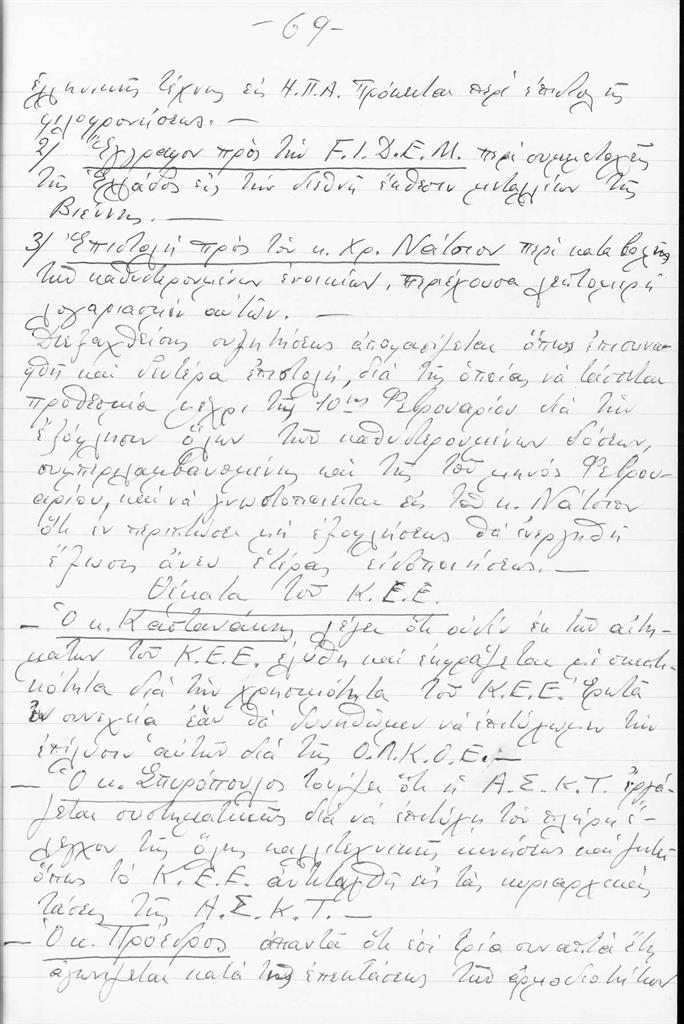 -69-
ἑλληνικῆς τέχνης εἰς Η.Π.Α. Πρόκειται περί ἐπιστολῆς
φιλοφρονήσεως. —
2/ Ἔγγραφον πρὸς τὴν F.I.D.E.M. περὶ συμμετοχῆς
τῆς Ἑλλάδος εἰς τὴν διεθνῆ ἔκθεσιν μεταλλίων τῆς
Βιέννης. —
3/ Ἐπιστολὴ πρὸς τὸν κ. Χρ. Νάτσιον περὶ καταβολῆς
τῶν καθυστερουμένων ἐνοικίων, περιέχουσα λεπτομερῆ
λογαριασμὸν αὐτῶν. —
Διεξαχθείσης συζητήσεως ἀποφασίζεται ὅπως ἐπισυνα-
φθῇ καὶ δευτέρα ἐπιστολή, διὰ τῆς ὁποίας νὰ τάσσεται
προθεσμία μέχρι τῆς 10ης Φεβρουαρίου διὰ τὴν
ἐξόφλησιν ὅλων τῶν καθυστερουμένων δόσεων,
συμπεριλαμβανομένης καὶ τῆς τοῦ μηνὸς Φεβρου-
αρίου, καὶ νὰ γνωστοποιεῖται εἰς τὸν κ. Νάτσιον
ὅτι ἐν περιπτώσει μὴ ἐξοφλήσεως θὰ ἐνεργηθῇ
ἔξωσις ἄνευ ἑτέρας εἰδοποιήσεως. —
Θέματα τοῦ Κ.Ε.Ε.
— Ὁ κ. Καστανάκης λέγει ὅτι οὐδὲν ἐκ τῶν αἰτη-
μάτων τοῦ Κ.Ε.Ε. ἐλύθη καὶ ἐκφράζεται μὲ σκεπτι-
κότητα διὰ τὴν χρησιμότητα τοῦ Κ.Ε.Ε. Ἐρωτᾶ
ἐν συνεχείᾳ ἐὰν θὰ δυνηθῶμεν νὰ ἐπιτύχωμεν τὴν
ἐπίλυσιν αὐτῶν διὰ τῆς Ο.Π.Κ.Ο.Ε. —
— Ὁ κ. Σπυρόπουλος τονίζει ὅτι ἡ Α.Σ.Κ.Τ. ἐργά-
ζεται συστηματικῶς διὰ νὰ ἐπιτύχῃ τὸν πλήρη ἔ-
λεγχον τῆς ὅλης καλλιτεχνικῆς κινήσεως καὶ ζητεῖ
ὅπως τὸ Κ.Ε.Ε. ἀντιταχθῇ εἰς τὰς κυριαρχικὰς
τάσεις τῆς Α.Σ.Κ.Τ. —
— Ὁ κ. Πρόεδρος ἀπαντᾶ ὅτι ἐπὶ τρία συναπτὰ ἔτη
ἀγωνίζεται κατὰ τῆς ἐπεκτάσεως τῶν ἁρμοδιοτήτων